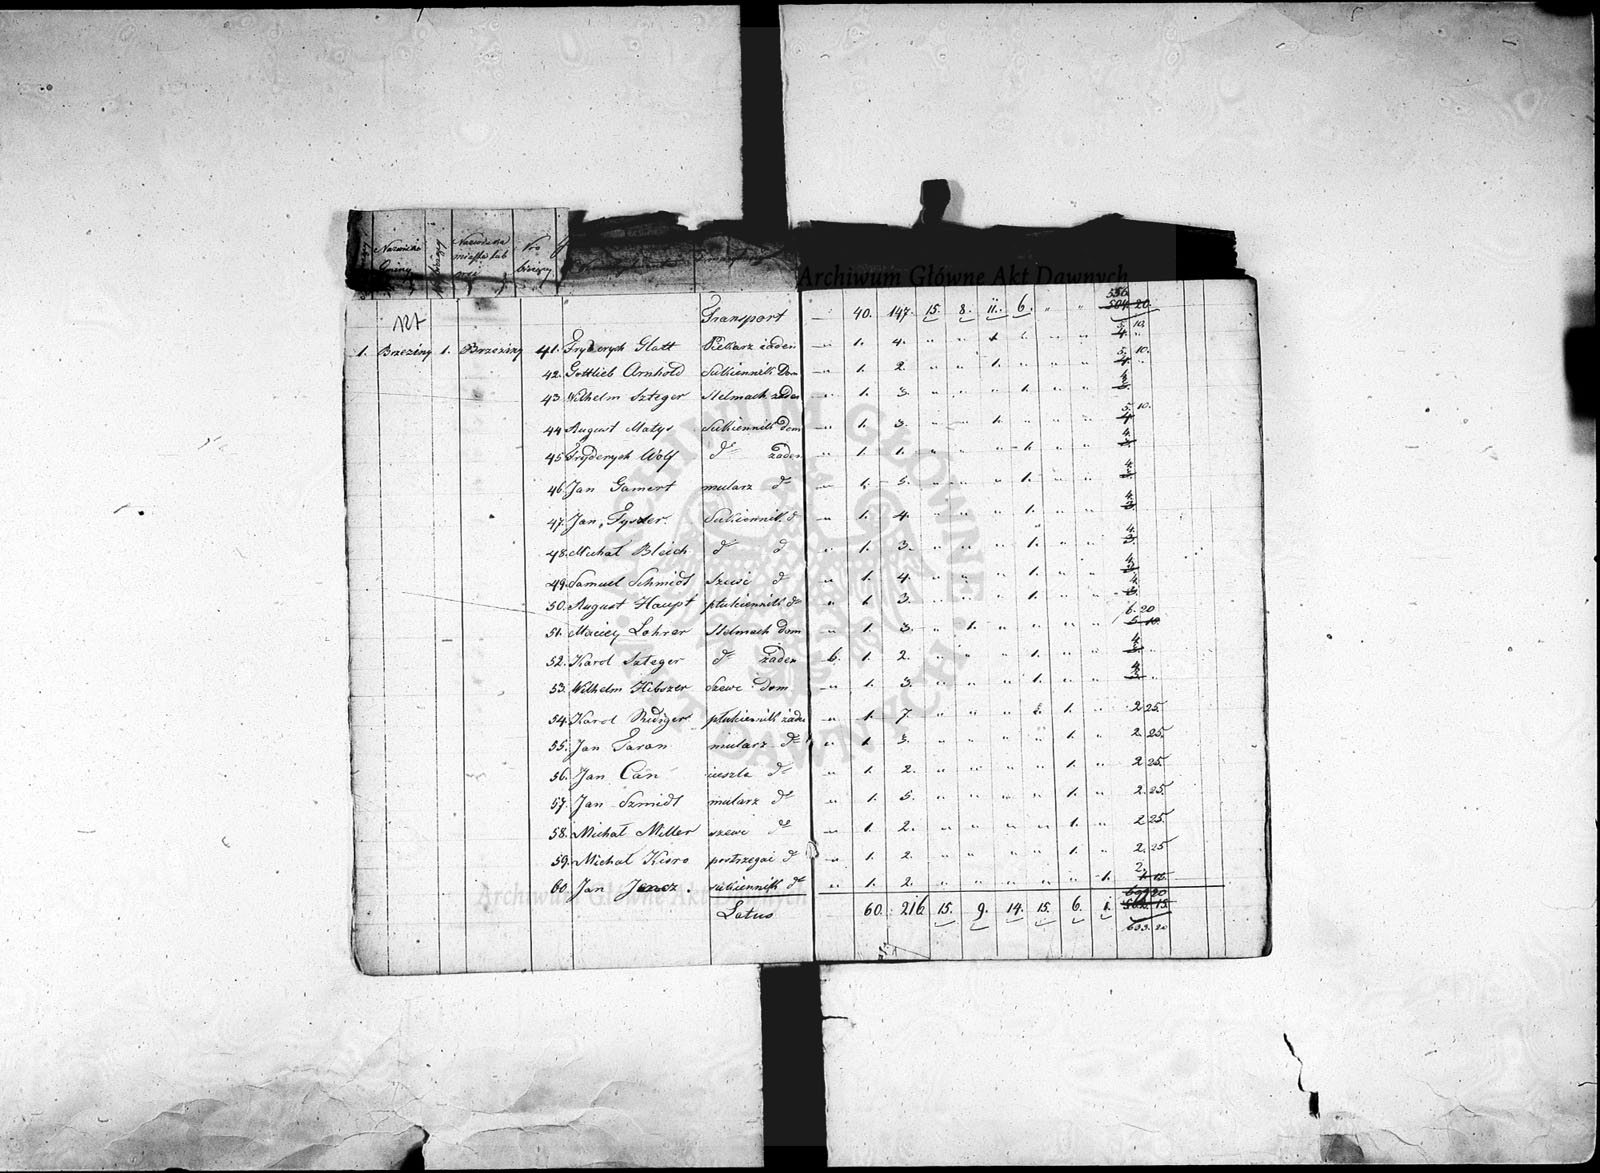 Nazwisko Gminy
Nazwisko miasta lub wsi
Archiwum Główne Akt Dawnych
Transport 40. 147. 15. 8. 11. 6. " " 556. 504. 20.
127
1. Brzeziny 1. Brzeziny 41. Fryderych Glatt Piekarz żaden " 1. 4. " " 1. " " " 5. 10. 4.
42. Gottlieb Arnhold Sukiennik Dom " 1. 2. " " 1. " " " 5. 10. 4.
43. Wilhelm Szteger Stelmach żaden " 1. 3. " " " 1. " " 4. 3.
44. August Matys Sukiennik dom " 1. 3. " " 1. " " " 5. 10. 4.
45. Fryderych Wolf do żaden " 1. 1. " " " 1. " " 4. 3.
46. Jan Gamert mularz do " 1. 5. " " " 1. " " 4. 3.
47. Jan Fyszer. Sukiennik. d " 1. 4. " " " 1. " " 4. 3.
48. Michał Bleich do d " 1. 3. " " " 1. " " 4. 3.
49. Samuel Schmidt Szewc d " 1. 4. " " " 1. " " 4. 3.
50. August Haupt płukiennik do " 1. 3. " " " 1. " " 4. 3.
51. Maciey Lohrer Stelmach dom " 1. 3. " 1. " " " " 6. 20 5. 10.
52. Karol Szteger do żaden 6. 1. 2. " " " 1. " " 4. 3.
53. Wilhelm Hibszer Szewc dom " 1. 3. " " " 1. " " 4. 3.
54. Karol Rudiger płukiennik żaden " 1. 7. " " " " 1. " 2 25.
55. Jan Taran mularz do " 1. 3. " " " " 1. " 2. 25.
56. Jan Can do " 1. 2. " " " " 1. " 2. 25.
57. Jan Szmidt mularz do " 1. 5. " " " " 1. " 2. 25.
58. Michał Miller szewc do " 1. 2. " " " " 1. " 2 25.
59. Michał Kioro postrzegai d " 1. 2. " " " " 1. " 2. 25
60. Jan Jencz. sukiennik do " 1. 2. " " " " " 1. 2. 1. 12.
Archiwum Główne Akt Dawnych
Latus 60. 216. 15. 9. 14. 15. 6. 1.
633. 20